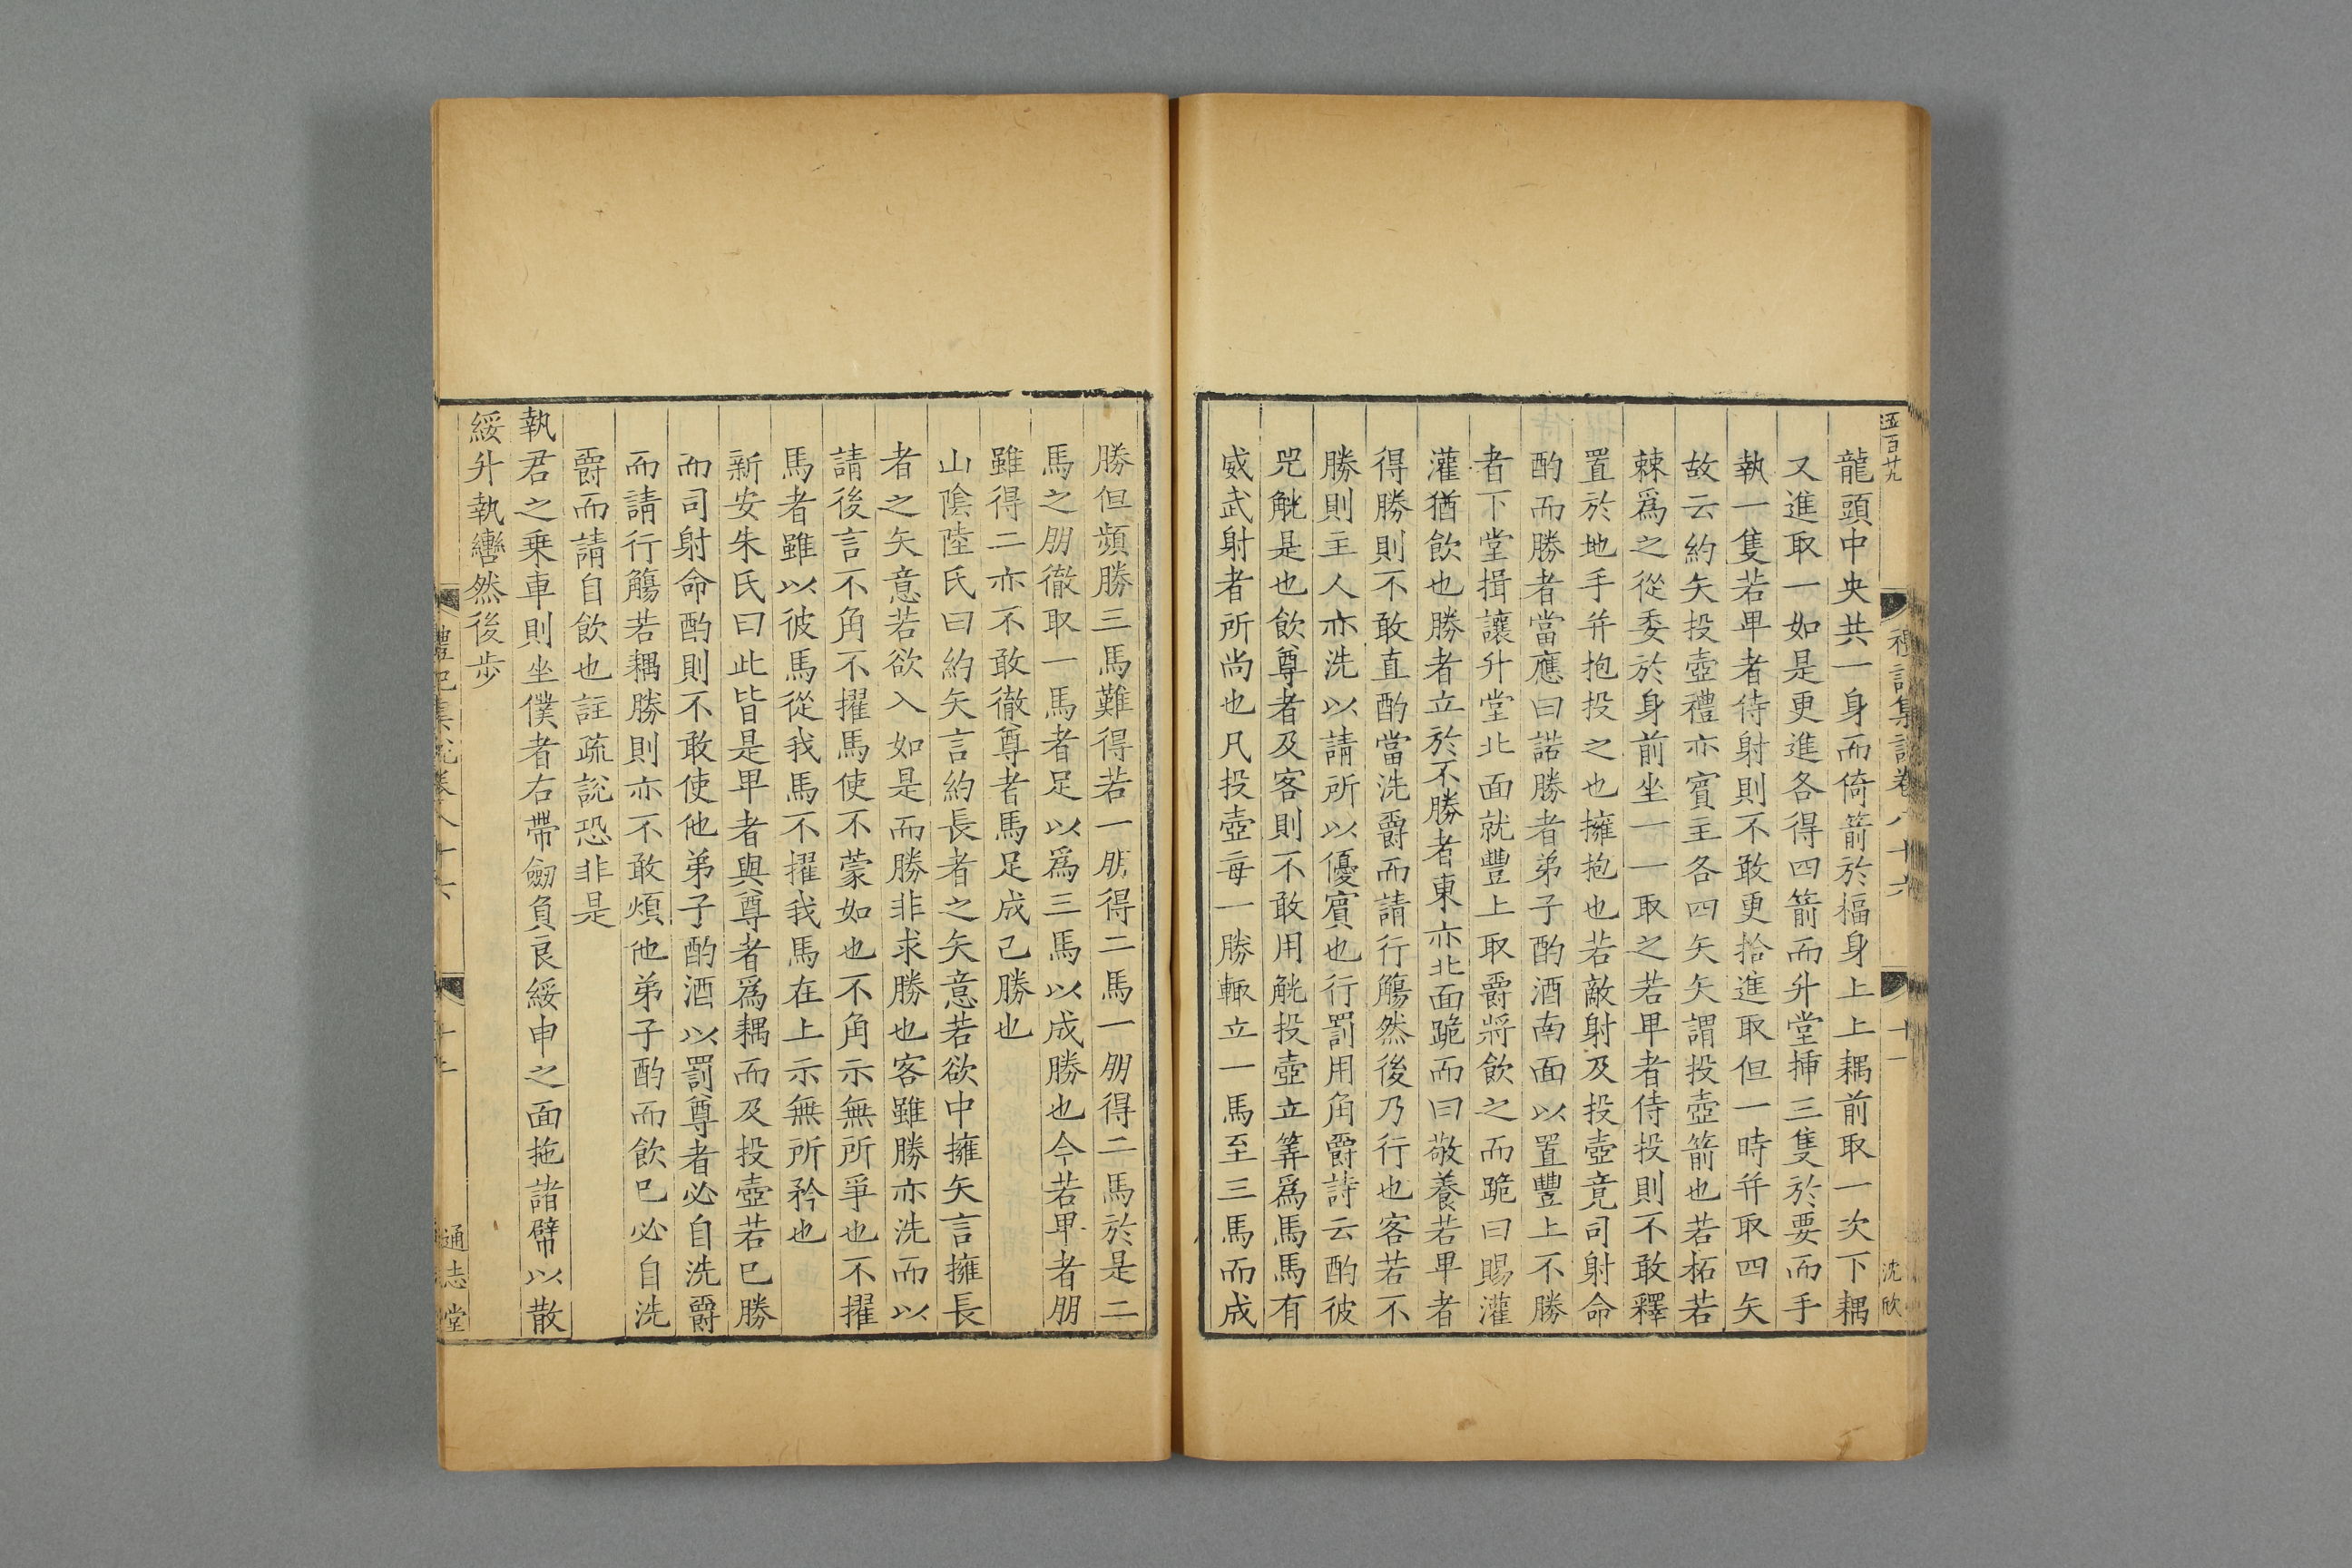 五百廿九
禮記集說卷八十六
十一
沈欣
龍頭中央共一身而倚箭於楅身上上耦前取一次下耦
又進取一如是更進各得四箭而升堂揷三隻於要而手
執一隻若卑者侍射則不敢更拾進取但一時幷取四矢
故云約矢投壺禮亦賓主各四矢矢謂投壺箭也若柘若
棘爲之從委於身前坐一一取之若卑者侍投則不敢釋
置於地手幷抱投之也擁抱也若敵射及投壺竟司射命
酌而勝者當應曰諾勝者弟子酌酒南面以置豐上不勝
者下堂揖讓升堂北面就豐上取爵將飮之而跪曰賜灌
灌猶飮也勝者立於不勝者東亦北面跪而曰敬養若卑者
得勝則不敢直酌當洗爵而請行觴然後乃行也客若不
勝則主人亦洗以請所以優賓也行罰用角爵詩云酌彼
兕觥是也飮尊者及客則不敢用觥投壺立筭爲馬馬有
威武射者所尚也凡投壺每一勝輒立一馬至三馬而成
勝但頻勝三馬難得若一朋得二馬一朋得二馬於是二
馬之朋徹取一馬者足以爲三馬以成勝也今若卑者朋
雖得二亦不敢徹尊者馬足成己勝也
山陰陸氏曰約矢言約長者之矢意若欲中擁矢言擁長
者之矢意若欲入如是而勝非求勝也客雖勝亦洗而以
請後言不角不擢馬使不蒙如也不角示無所爭也不擢
馬者雖以彼馬從我馬不擢我馬在上示無所矜也
新安朱氏曰此皆是卑者與尊者爲耦而及投壺若已勝
而司射命酌則不敢使他弟子酌酒以罰尊者必自洗爵
而請行觴若耦勝則亦不敢煩他弟子酌而飮已必自洗
爵而請自飮也註疏說恐非是
執君之乗車則坐僕者右帶劒負良綏申之面拖諸幦以散
綏升執轡然後步
禮記集說卷八十六
通志堂